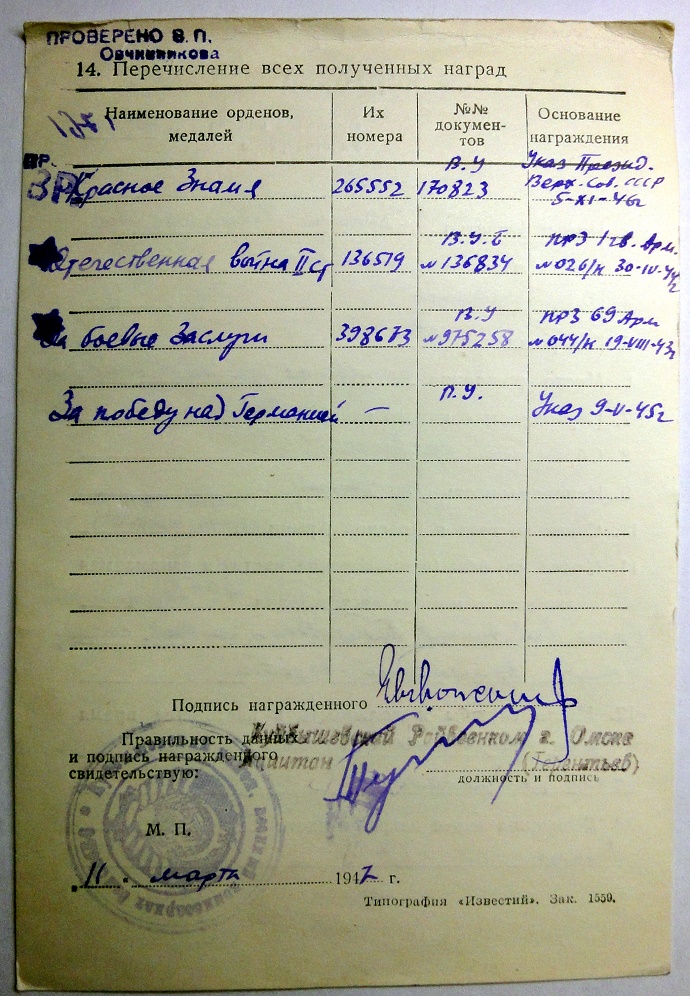 ПРОВЕРЕНО В. П.
Овчинникова
14. Перечисление всех полученных наград
Наименование орденов, медалей
Их номера
№№ документов
Основание награждения
ПР.
ЗР
Красное Знамя 265552 В.У 170823 Указ Презид. Верх. Сов. СССР 5-XI-46г
Отечественная война II ст 136519 В.У.Б №136834 прз 1 гв. Арм. №026/н 30-IV-44г
За боевые Заслуги 398673 В.У №975258 прз 69 Арм №044/н 19-VIII-43г
За победу над Германией — П.У. Указ 9-V-45г
Подпись награжденного
Правильность данных
и подпись награжденного
свидетельствую:
Куйбышевский Райвоенком г. Омска
Капитан (Терентьев)
должность и подпись
М. П.
"11" марта 1947 г.
Типография «Известий». Зак. 1559.